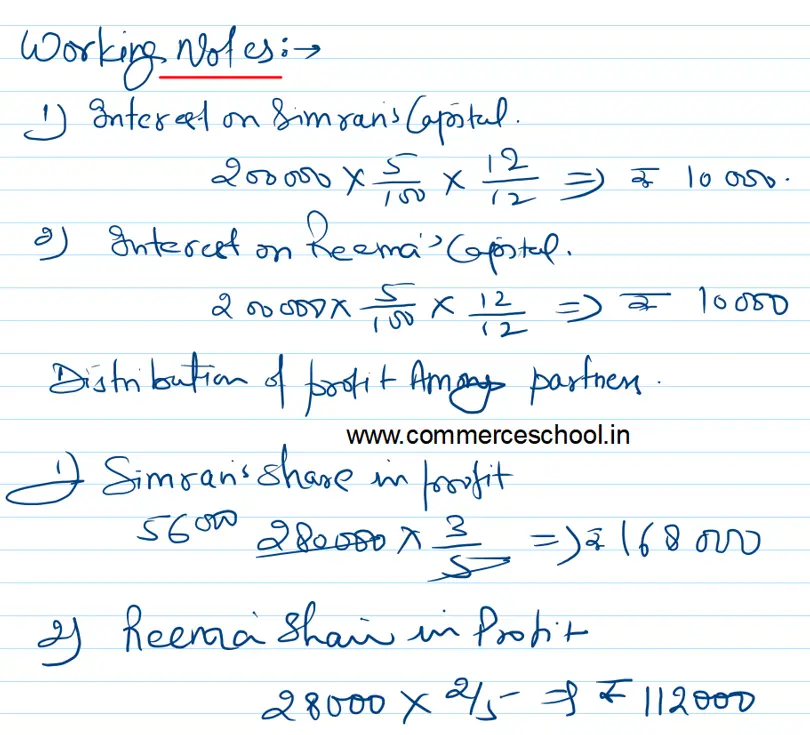 Working Notes:→
1) Interest on Simran's Capital.
200000 × 5/100 × 12/12 ⇒ ₹ 10000.
2) Interest on Reema's Capital.
200000 × 5/100 × 12/12 ⇒ ₹ 10000
Distribution of profit Among partners.
www.commerceschool.in
1) Simran's Share in profit
56000 280000 × 3/5 ⇒ ₹ 168000
2) Reema Share in Profit
28000 × 2/5 ⇒ ₹ 112000